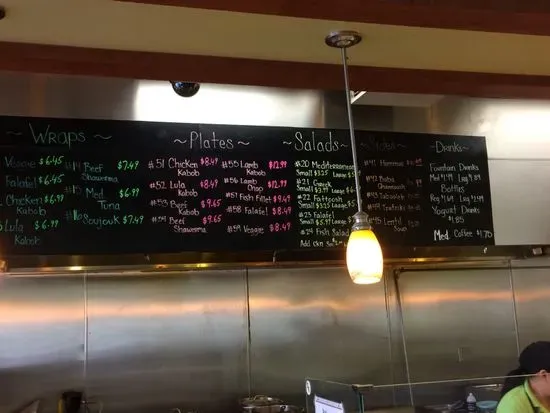 ~ WRAPS ~
Veggie $6.45
Falafel $6.45
Chicken $6.99
Kabob
Lula $6.99
Kabob
#14 Beef $7.49
Shawerma
#15 Med. $6.99
Tuna
#16 Soujouk $7.49
~ Plates ~
#51 Chicken $8.49
Kabob
#52 Lula $8.49
Kabob
#53 Beef $9.65
Kabob
#54 Beef $9.65
Shawerma
#55 Lamb $12.99
Kabob
#56 Lamb $12.99
Chop
#57 Fish Fillet $9.49
#58 Falafel $8.49
#59 Veggie $8.49
~ Salads ~
#20 Mediterranean
Small $3.25 Large
#21 Greek
Small $3.99 Large
#22 Fattoush
Small $3.25 Large
#23 Falafel
Small $3.25 Large
#24 Fish Salad
Add ckn
#41 Hummus
#42 Baba
Ghannouj
#43 Tabouleh
#44 Tzatziki
#45 Lentil
Soup
~ Drinks ~
Fountain Drinks
Med $1.69 Large $1.89
Bottles
Reg $1.69 Large $1.99
Yogurt Drinks
$1.85
Med. Coffee $1.70